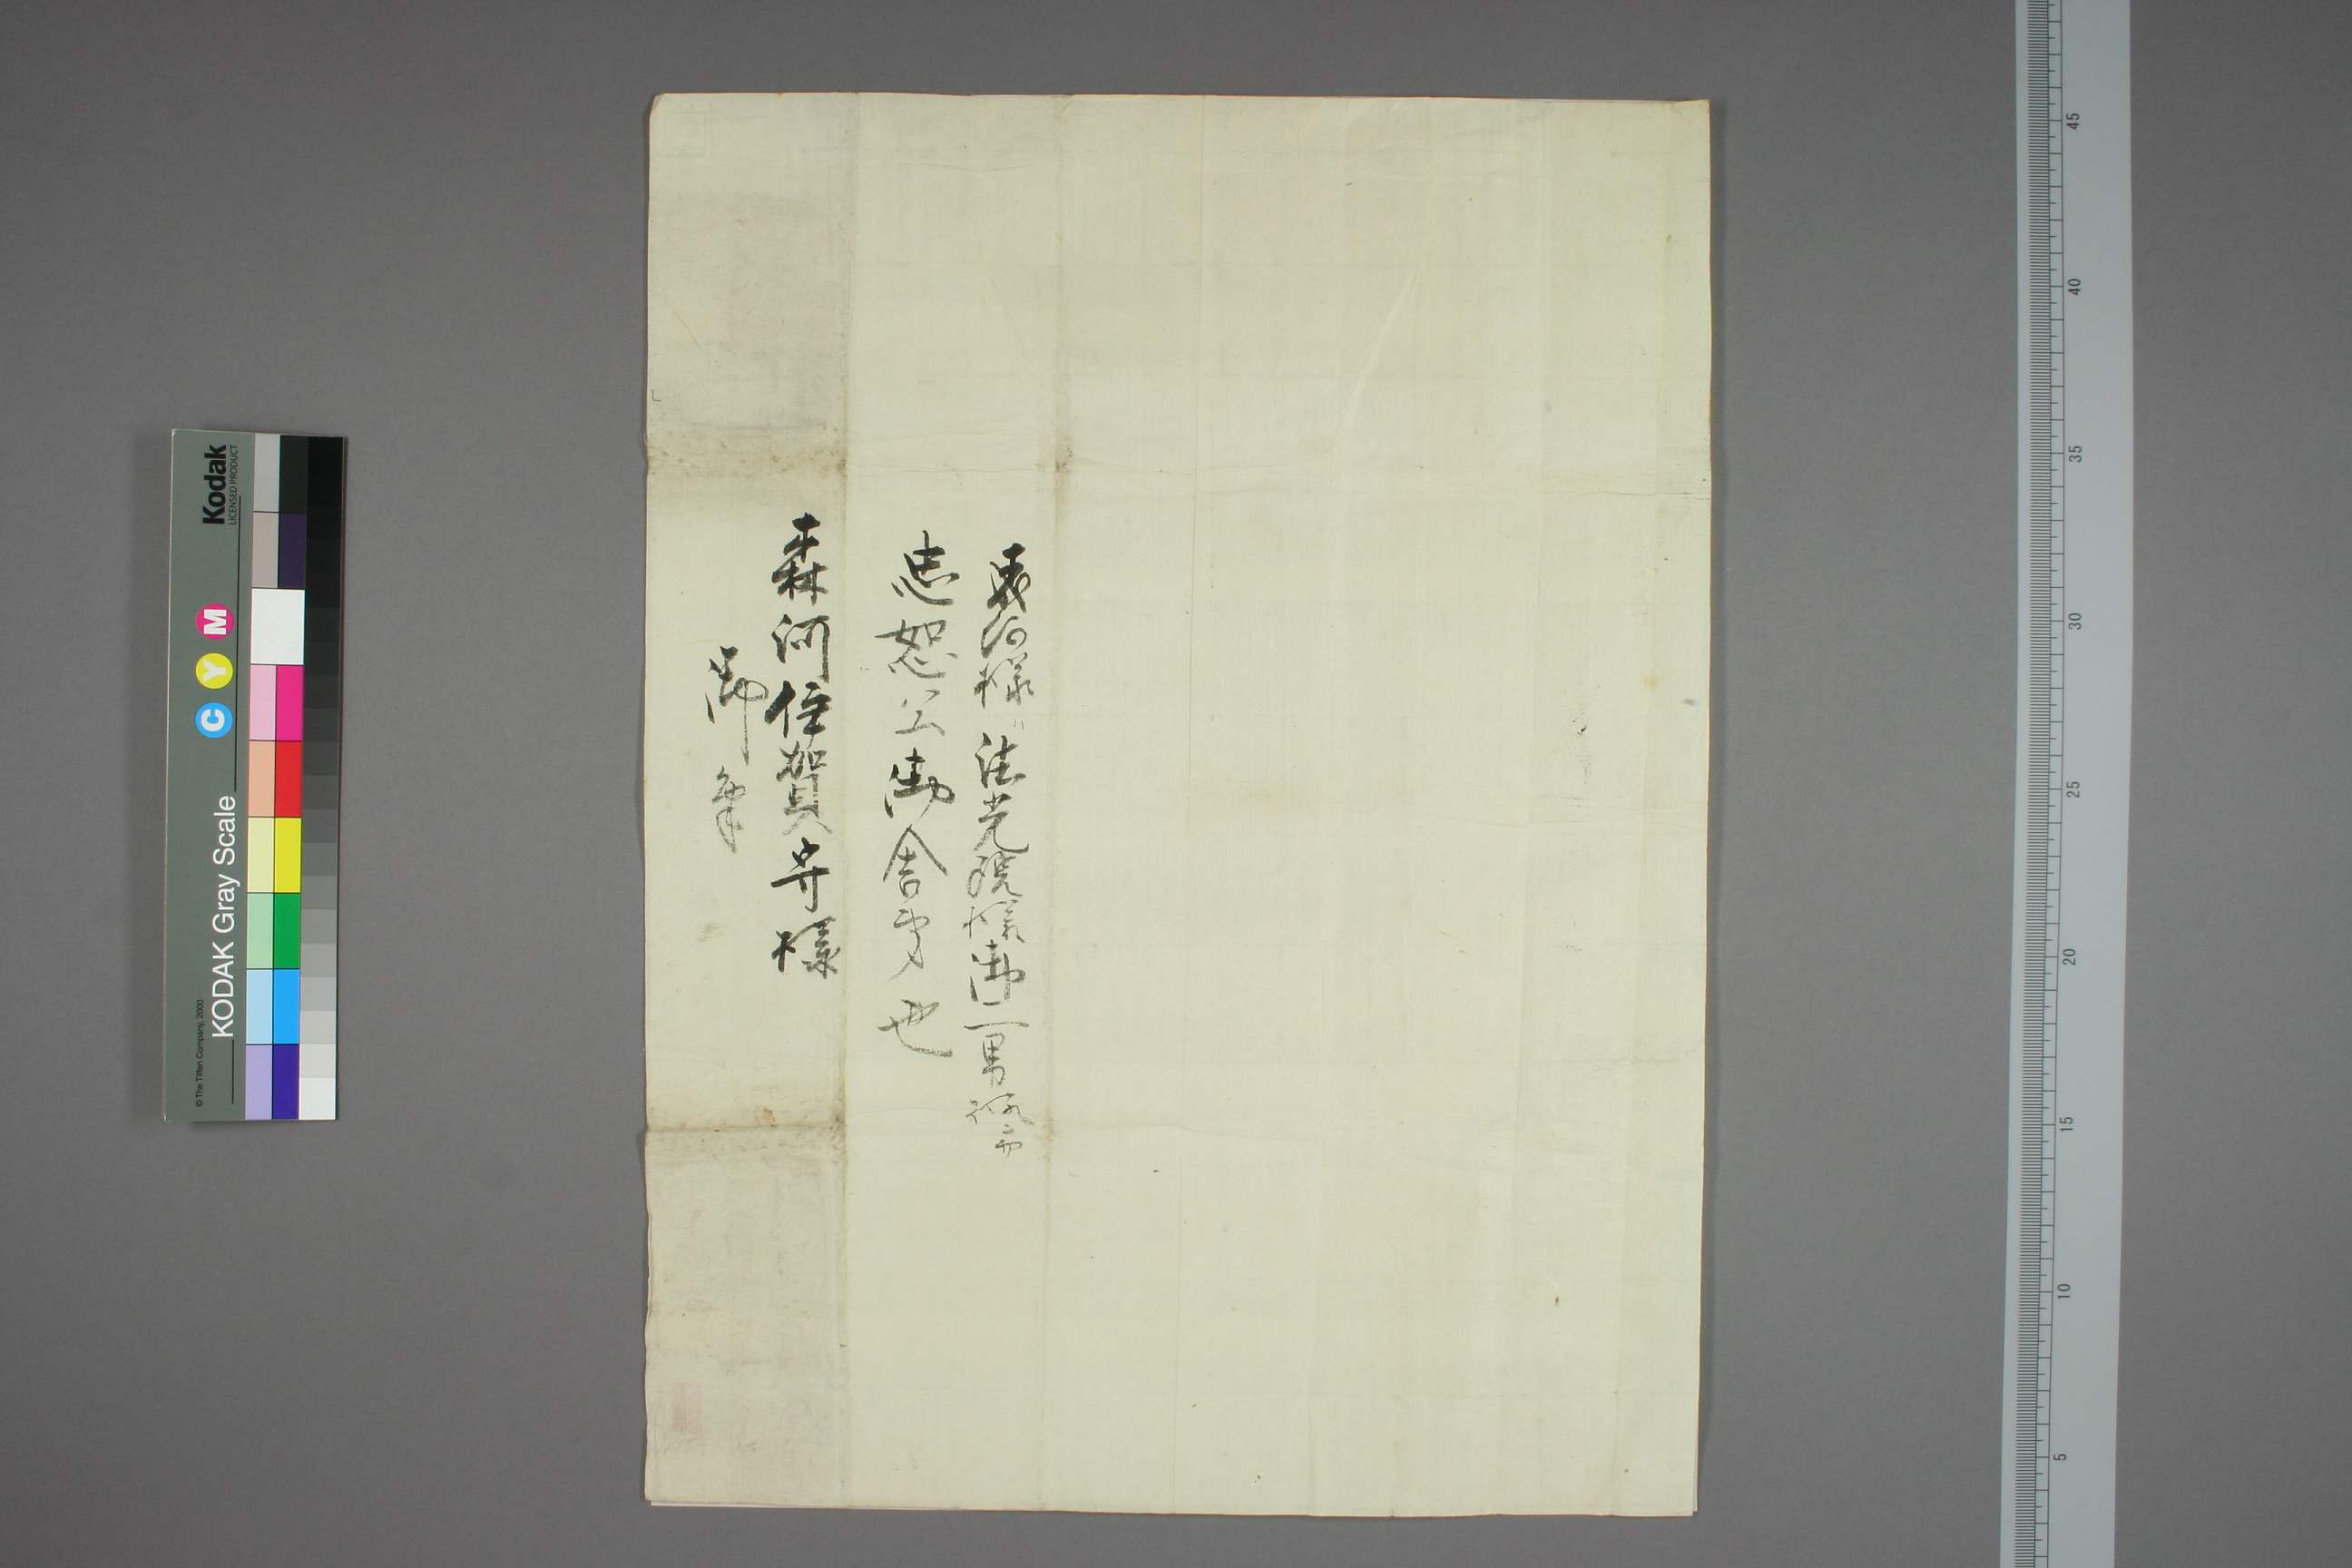 様 法光院様御二男様ニ而
忠恕公御舎弟也
森河伊賀守様
御筆
Kodak
LICENSED PRODUCT
KODAK Gray Scale
C Y M
© The Tiffen Company, 2000
45
40
35
30
25
20
15
10
5